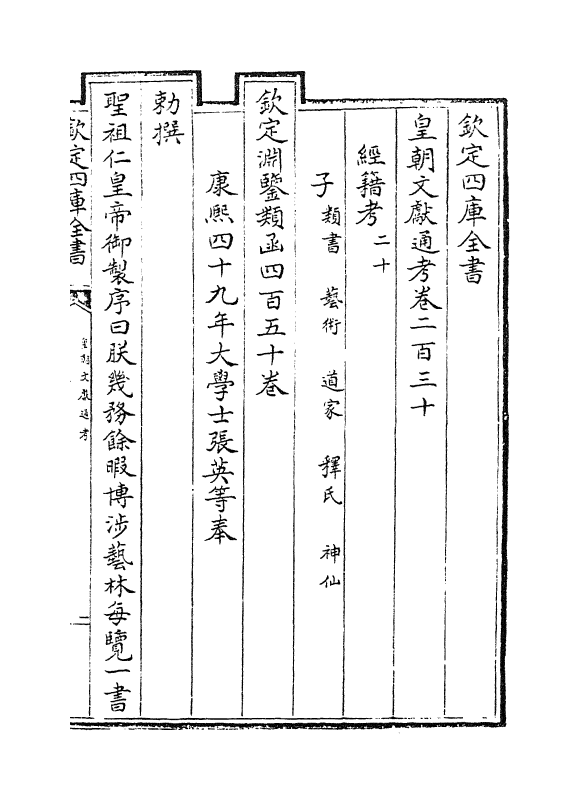 欽定四庫全書
皇朝文獻通考卷二百三十
經籍考二十
子類書　藝術　道家　釋氏　神仙
欽定淵鑒類函四百五十卷
康熙四十九年大學士張英等奉
勅撰
聖祖仁皇帝御製序曰朕幾務餘暇博涉藝林每覽一書
欽定四庫全書
皇朝文獻通考